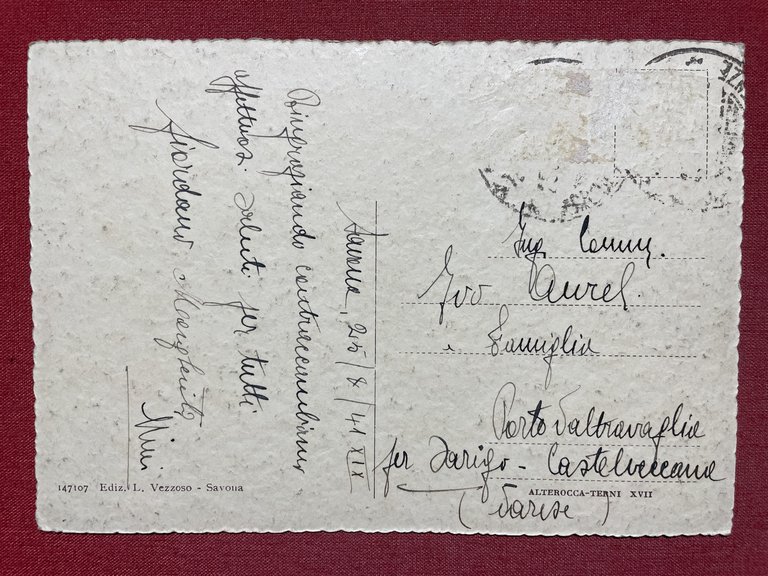 Savona, 25/8/41 XIX
Ringraziando contraccambiamo
affettuosi saluti per tutti
Giordano Margherita
Mimi
Ing. Comm.
Ivo Aurel.
e Famiglia
Porto Valtravaglia
per Sarigo - Castelveccana
(Varese)
147107 Ediz. L. Vezzoso - Savona
ALTEROCCA-TERNI XVII